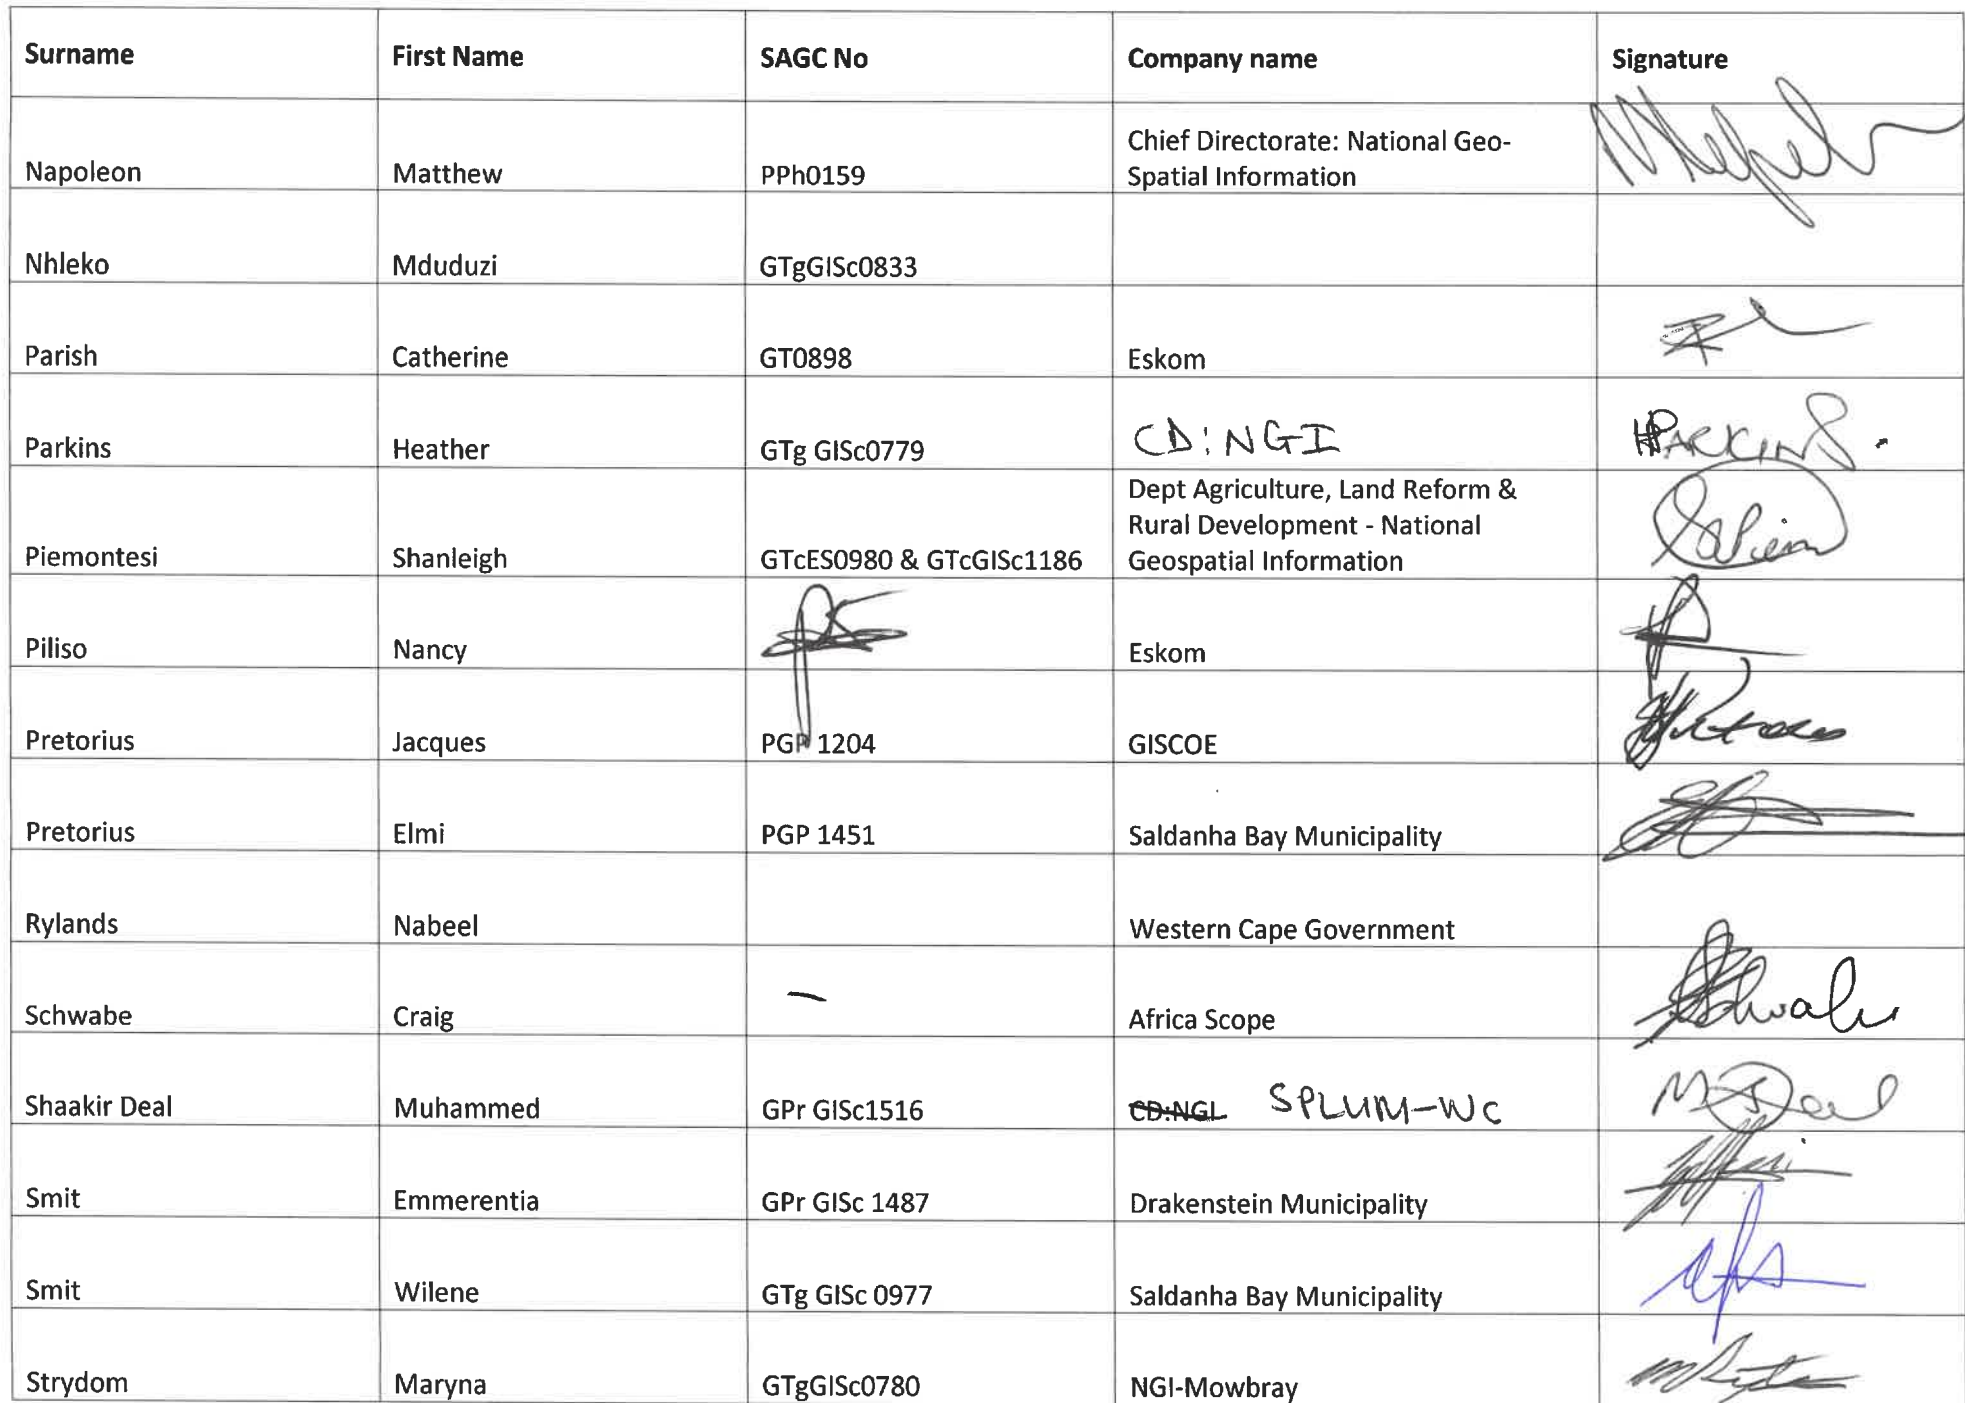 Surname First Name SAGC No Company name Signature
Napoleon Matthew PPh0159 Chief Directorate: National Geo-
Spatial Information
Nhleko Mduduzi GTgGISc0833
Parish Catherine GT0898 Eskom
Parkins Heather GTg GISc0779 CD:NGI HPARKINS.
Piemontesi Shanleigh GTcES0980 & GTcGISc1186 Dept Agriculture, Land Reform &
Rural Development - National
Geospatial Information
Piliso Nancy Eskom
Pretorius Jacques PGP 1204 GISCOE
Pretorius Elmi PGP 1451 Saldanha Bay Municipality
Rylands Nabeel Western Cape Government
Schwabe Craig – Africa Scope
Shaakir Deal Muhammed GPr GISc1516 CD:NGI SPLUM-WC
Smit Emmerentia GPr GISc 1487 Drakenstein Municipality
Smit Wilene GTg GISc 0977 Saldanha Bay Municipality
Strydom Maryna GTgGISc0780 NGI-Mowbray